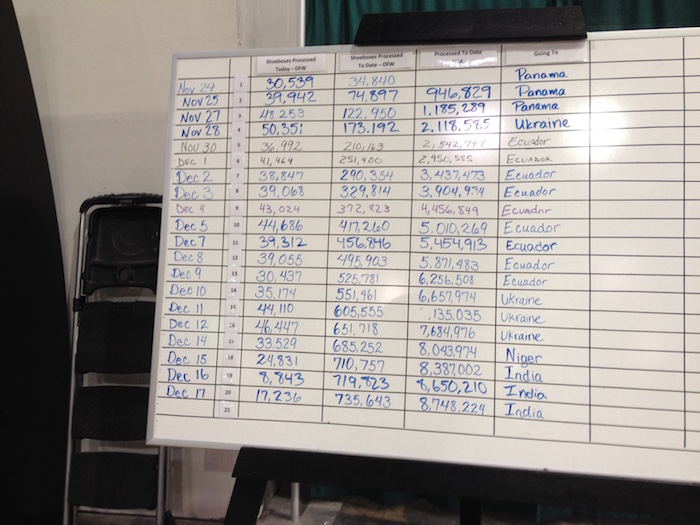 Shoeboxes Processed Today - DFW Shoeboxes Processed To Date - DFW Processed To Date Going To
Nov 24 1 30,539 34,840 Panama
Nov 25 2 39,942 74,897 946,829 Panama
Nov 27 3 48,253 122,950 1,185,289 Panama
Nov 28 4 50,351 173,192 2,118,585 Ukraine
Nov 30 5 36,992 210,163 Ecuador
Dec 1 6 41,464 251,400 2,950,585 Ecuador
Dec 2 7 38,847 290,354 3,437,473 Ecuador
Dec 3 8 39,068 329,814 3,904,974 Ecuador
Dec 4 9 43,024 372,823 4,456,849 Ecuador
Dec 5 10 44,686 417,260 5,010,269 Ecuador
Dec 7 11 39,312 456,846 5,454,913 Ecuador
Dec 8 12 39,055 495,903 5,871,483 Ecuador
Dec 9 13 30,437 525,781 6,256,508 Ecuador
Dec 10 14 35,174 551,461 6,657,974 Ukraine
Dec 11 15 44,110 605,555 ,135,035 Ukraine
Dec 12 16 46,447 651,718 7,684,976 Ukraine
Dec 14 17 33,529 685,252 8,043,974 Niger
Dec 15 18 24,831 710,757 8,387,002 India
Dec 16 19 8,843 719,823 8,650,210 India
Dec 17 20 17,236 735,643 8,748,224 India
21